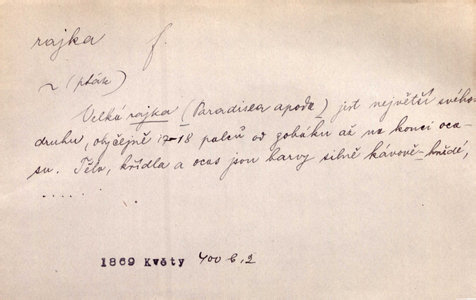 rajka f.
~ (pták)
Velká rajka (Paradisea apoda) jest největší svého
druhu, obyčejně 17–18 palců od zobáku až na konci oca-
su. Tělo, křídla a ocas jsou barvy silně kávově-hnědé,
.....
1869 Květy 400 b, 2